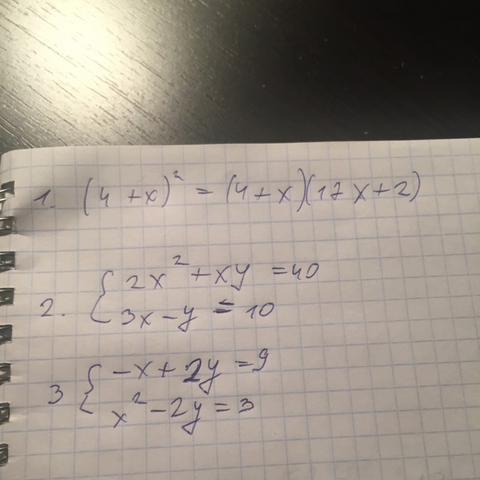 1. (4+x)² = (4+x)(17x+2)
2. { 2x²+xy =40
3x-y = 10
3 { -x+2y=9
x²-2y=3